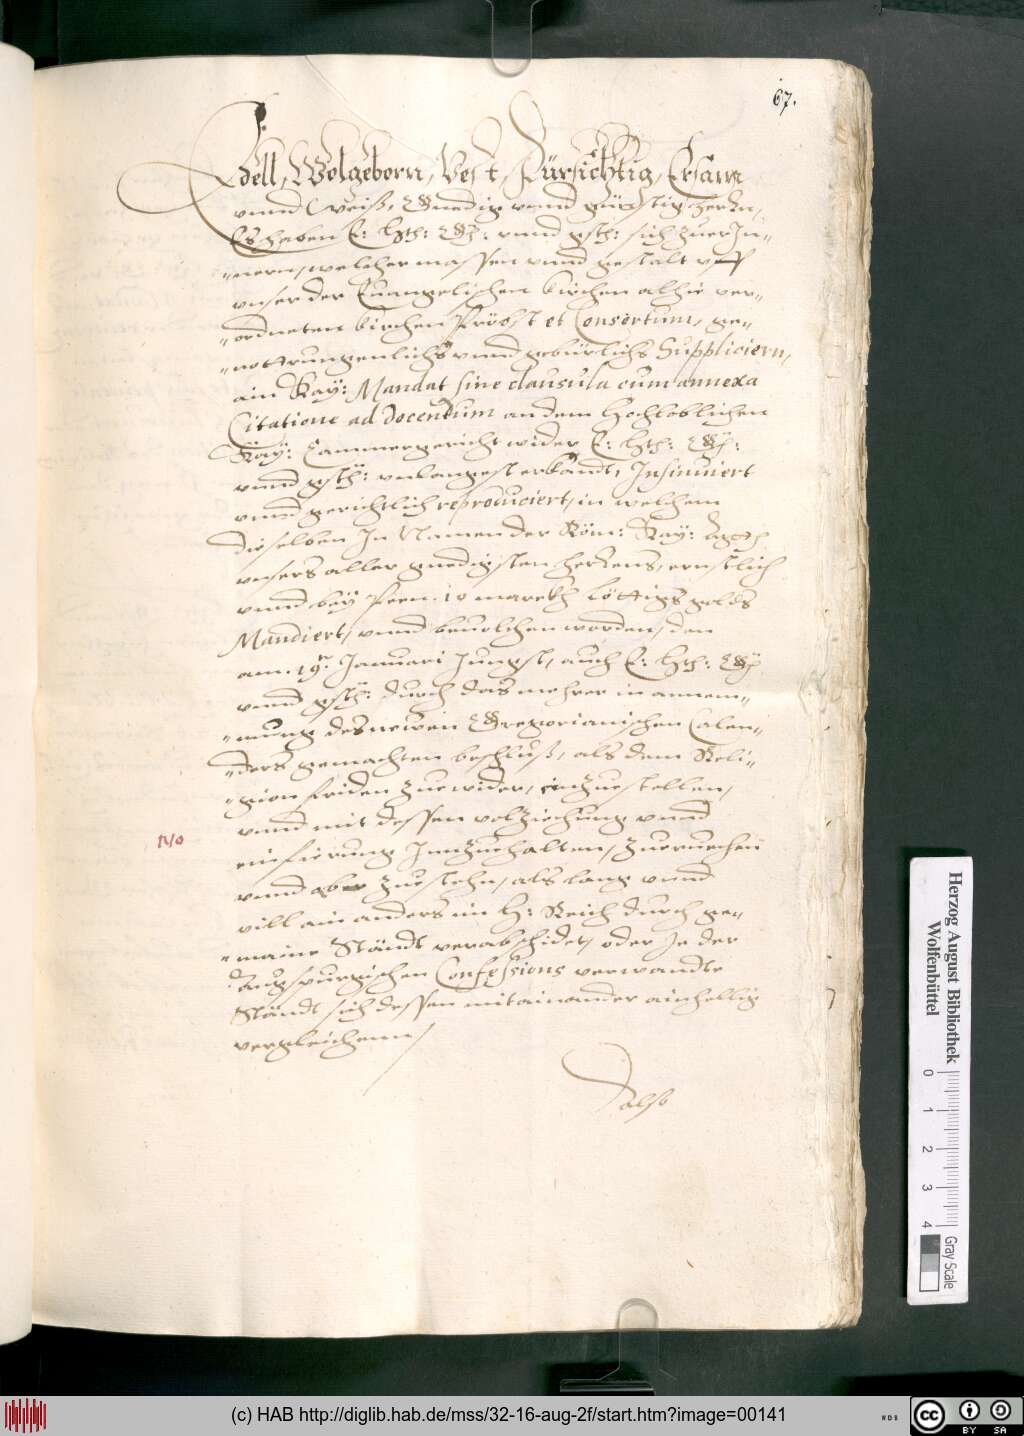 67.
Edell, Wolgeborn, Vest, Fürsichtig, Ersam
vnnd Weiß, Gnedig vnnd günstig herrn,
Es haben E: Hrh: Gn: vnnd gsth: sich zuer In-
"nern, welcher massen vnnd gestalt vff
vnser der Euangelischen kirchen alhie ver-
"ordneten kirchen Pröbst et Consortum, ge-
"nottrungenlichs vnnd gebürlichs Suppliciern,
ain Kay: Mandat sine clausula cum annexa
Citatione ad docendum an dem Hochloblichen
Kay: Cammergericht wider E: Hrh: Gn:
vnnd gsth: vnlangest erkandt, Insinuiert
vnnd gerichtlich reproduciert, in welchem
dieselben In Namen der Röm: Kay:
vnsers aller gnedigsten herrens, ernstlich
vnnd bey Peen 10 marckh löttigs golds
Mandiert, vnnd beuolchen worden, den
am 19.n Januari Jungst, auch E: Hrh: Gn:
vnnd gsth: durch das mehrer in annem-
"mung des newen Gregorianischen Calen-
"ders gemachten beschluß, als dem Reli-
"gion friden zuewider, einzuestellen,
vnnd mit dessen volziechung vnnd
einfierung Innzuehalten, zueruechen
vnnd aber zuestehn, als lang vnnd
vill ain anders im H: Reich durch ge-
"maine Ständt verabschidet, oder Je der
Augspurgischen Confessions verwandte
Ständt sich dessen mitainander ainhellig
vergleichenn,
N/o
also
Herzog August Bibliothek
Wolfenbüttel
0 1 2 3 4
Gray Scale
(c) HAB http://diglib.hab.de/mss/32-16-aug-2f/start.htm?image=00141
WDB
cc BY SA